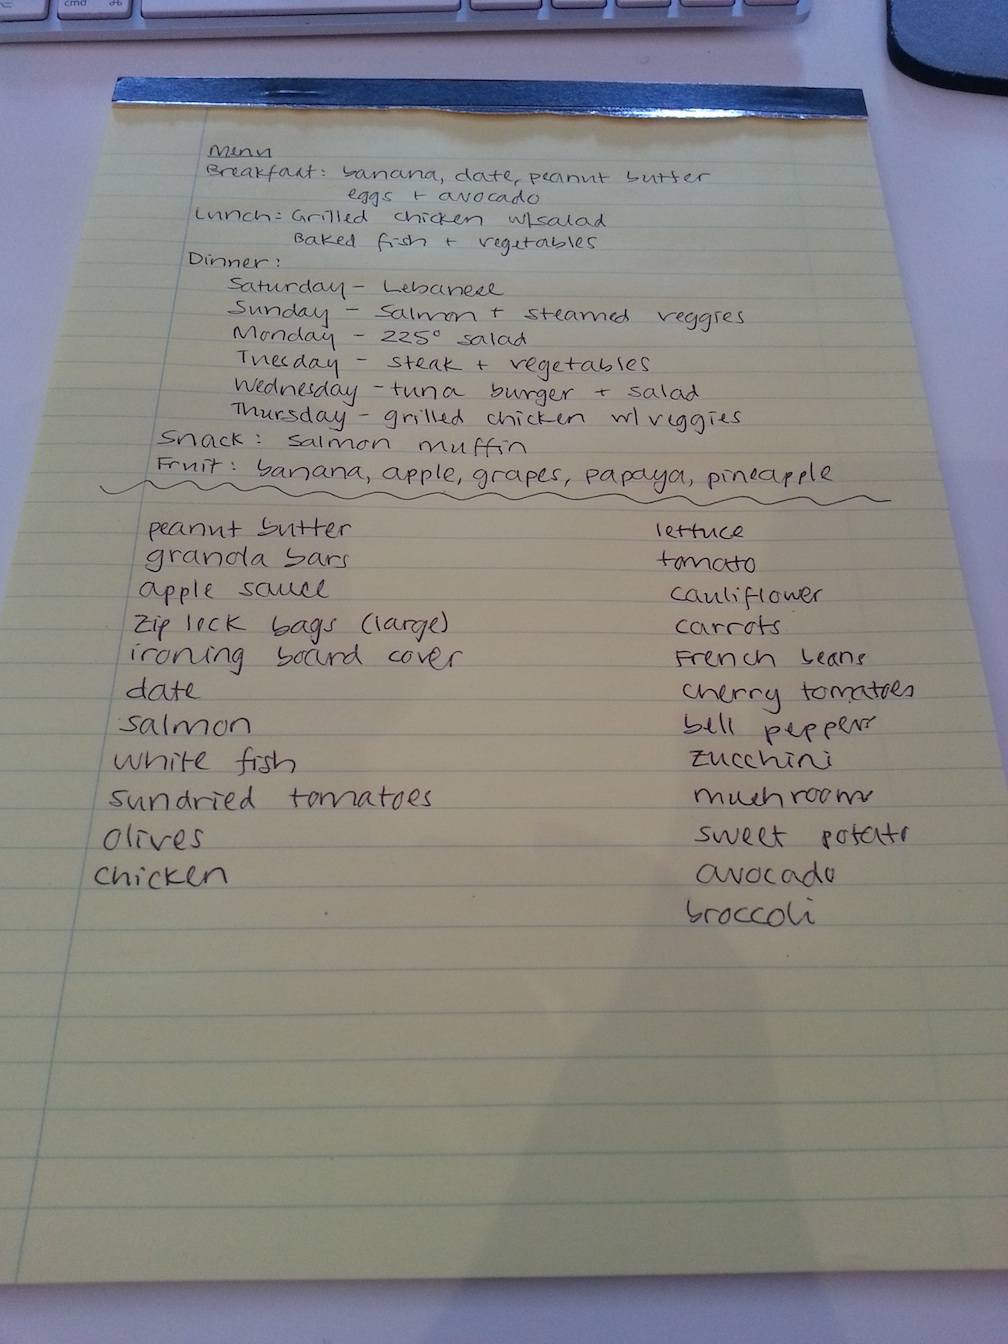 cmd ⌘
Menu
Breakfast: banana, date, peanut butter
eggs + avocado
Lunch: Grilled chicken w/salad
Baked fish + vegetables
Dinner:
Saturday - Lebanese
Sunday - Salmon + steamed veggies
Monday - 225° salad
Tuesday - steak + vegetables
Wednesday - tuna burger + salad
Thursday - grilled chicken w/ veggies
Snack: salmon muffin
Fruit: banana, apple, grapes, papaya, pineapple
peanut butter
granola bars
apple sauce
zip lock bags (large)
ironing board cover
date
salmon
white fish
sundried tomatoes
olives
chicken
lettuce
tomato
cauliflower
carrots
French beans
cherry tomatoes
bell peppers
zucchini
mushrooms
sweet potato
avocado
broccoli